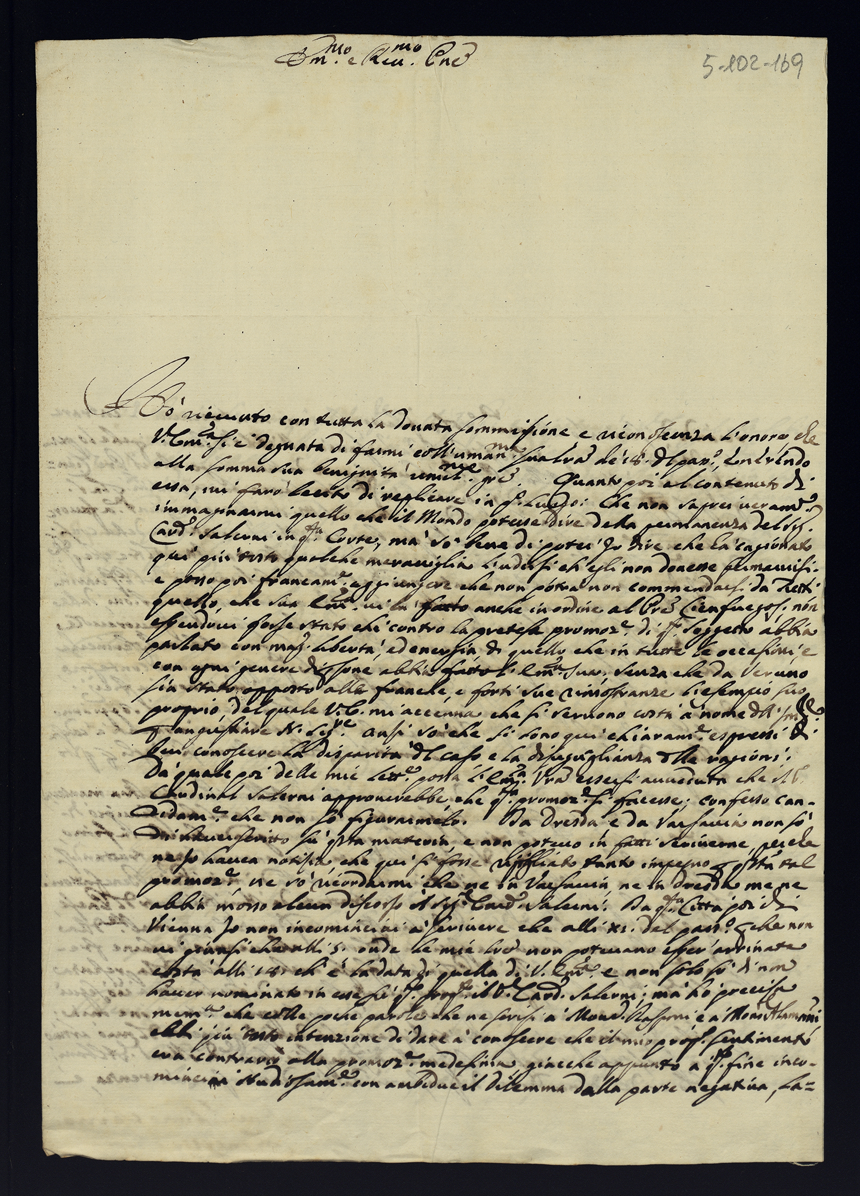 Em.mo e Rev.mo Pne
5-102-169
Hò riceuuto con tutta la douuta sommissione e riconoscenza l'onore che
V. Em.za si è degnata di farmi coll'uman.ma sua l'ra de' 18. del pas.o, rendendo
alla somma sua benignità umil.me gr.e Quanto poi al contenuto di
essa, mi farò lecito di replicare in p.o luogo: Che non saprei ueram.e
immaginarmi quello che il Mondo potesse dire della permanenza del Sig.r
Card. Salerni in q.ta Corte, mà sò bene di poter Jo dire, che hà cagionato
qui più tosto qualche merauiglia l'udirsi ch'egli non douesse rimanerui.
e posso poi francam.e aggiungere che non potrà non commendarsi da tutti
quello, che sua Em.za ui hà fatto anche in ordine al P're Cienfuegos, non
essendoui forse stato chi contro la pretesa promoz.e di q.o soggetto abbia
parlato con mag.r libertà, ed energia di quello che in tutte le occasioni e
con ogni genere di persone abbia fatto l'Em.za Sua, senza che da ueruno
sia stato opposto alle franche, e forti sue rimostranze l'esempio suo
proprio, del quale V. E. mi accenna che si seruono costà à nome
angustiare N. Sig.re anzi sò che si sono qui chiaram.e espressi di
ben conoscere la disparità del caso e la disuguaglianza delle ragioni.
Da quale poi delle mie lett.e possa l'Em.za V'ra essersi auueduta che il S.r
Cardinal Salerni approuerebbe, che q.ta promoz.e si facesse; confesso can-
didam.e che non sò figurarmelo. Da Dresda, e da Varsauia non sò
di hauer scritto sù q.sta materia, e non poteuo in fatti scriuerne, perche
ne Jo haueua notizia che qui si fosse ripigliato tanto impegno p q.sta tal
promoz.e, ne sò ricordarmi che ne in Varsauia, ne in Dresda me ne
abbia mosso alcun discorso il Sig.r Card. Salerni. Da q.ta Città poi di
Vienna Jo non incominciai à scriuere che alli xi. del pass.o p che non
ui giunsi che alli 5. onde le mie l're non poteuano esser arriuate
costà alli 18. ch'è la data di quella di V. Em.za e non solo sò di non
hauer nominato in esse sù q.o prop.to il S.r Card. Salerni; mà hò precisa
mem.a che colle poche parole che ne scrissi à Mons.r Rasponi e à Mons.r Alamanni
ebbi più tosto intenzione di dare à conoscere che il mio prop.o sentimento
era contrario alla promoz.e medesima, giacche appunto à q.o fine inco-
minciai studiosam.e con ambidue il dilemma dalla parte negatiua, la=